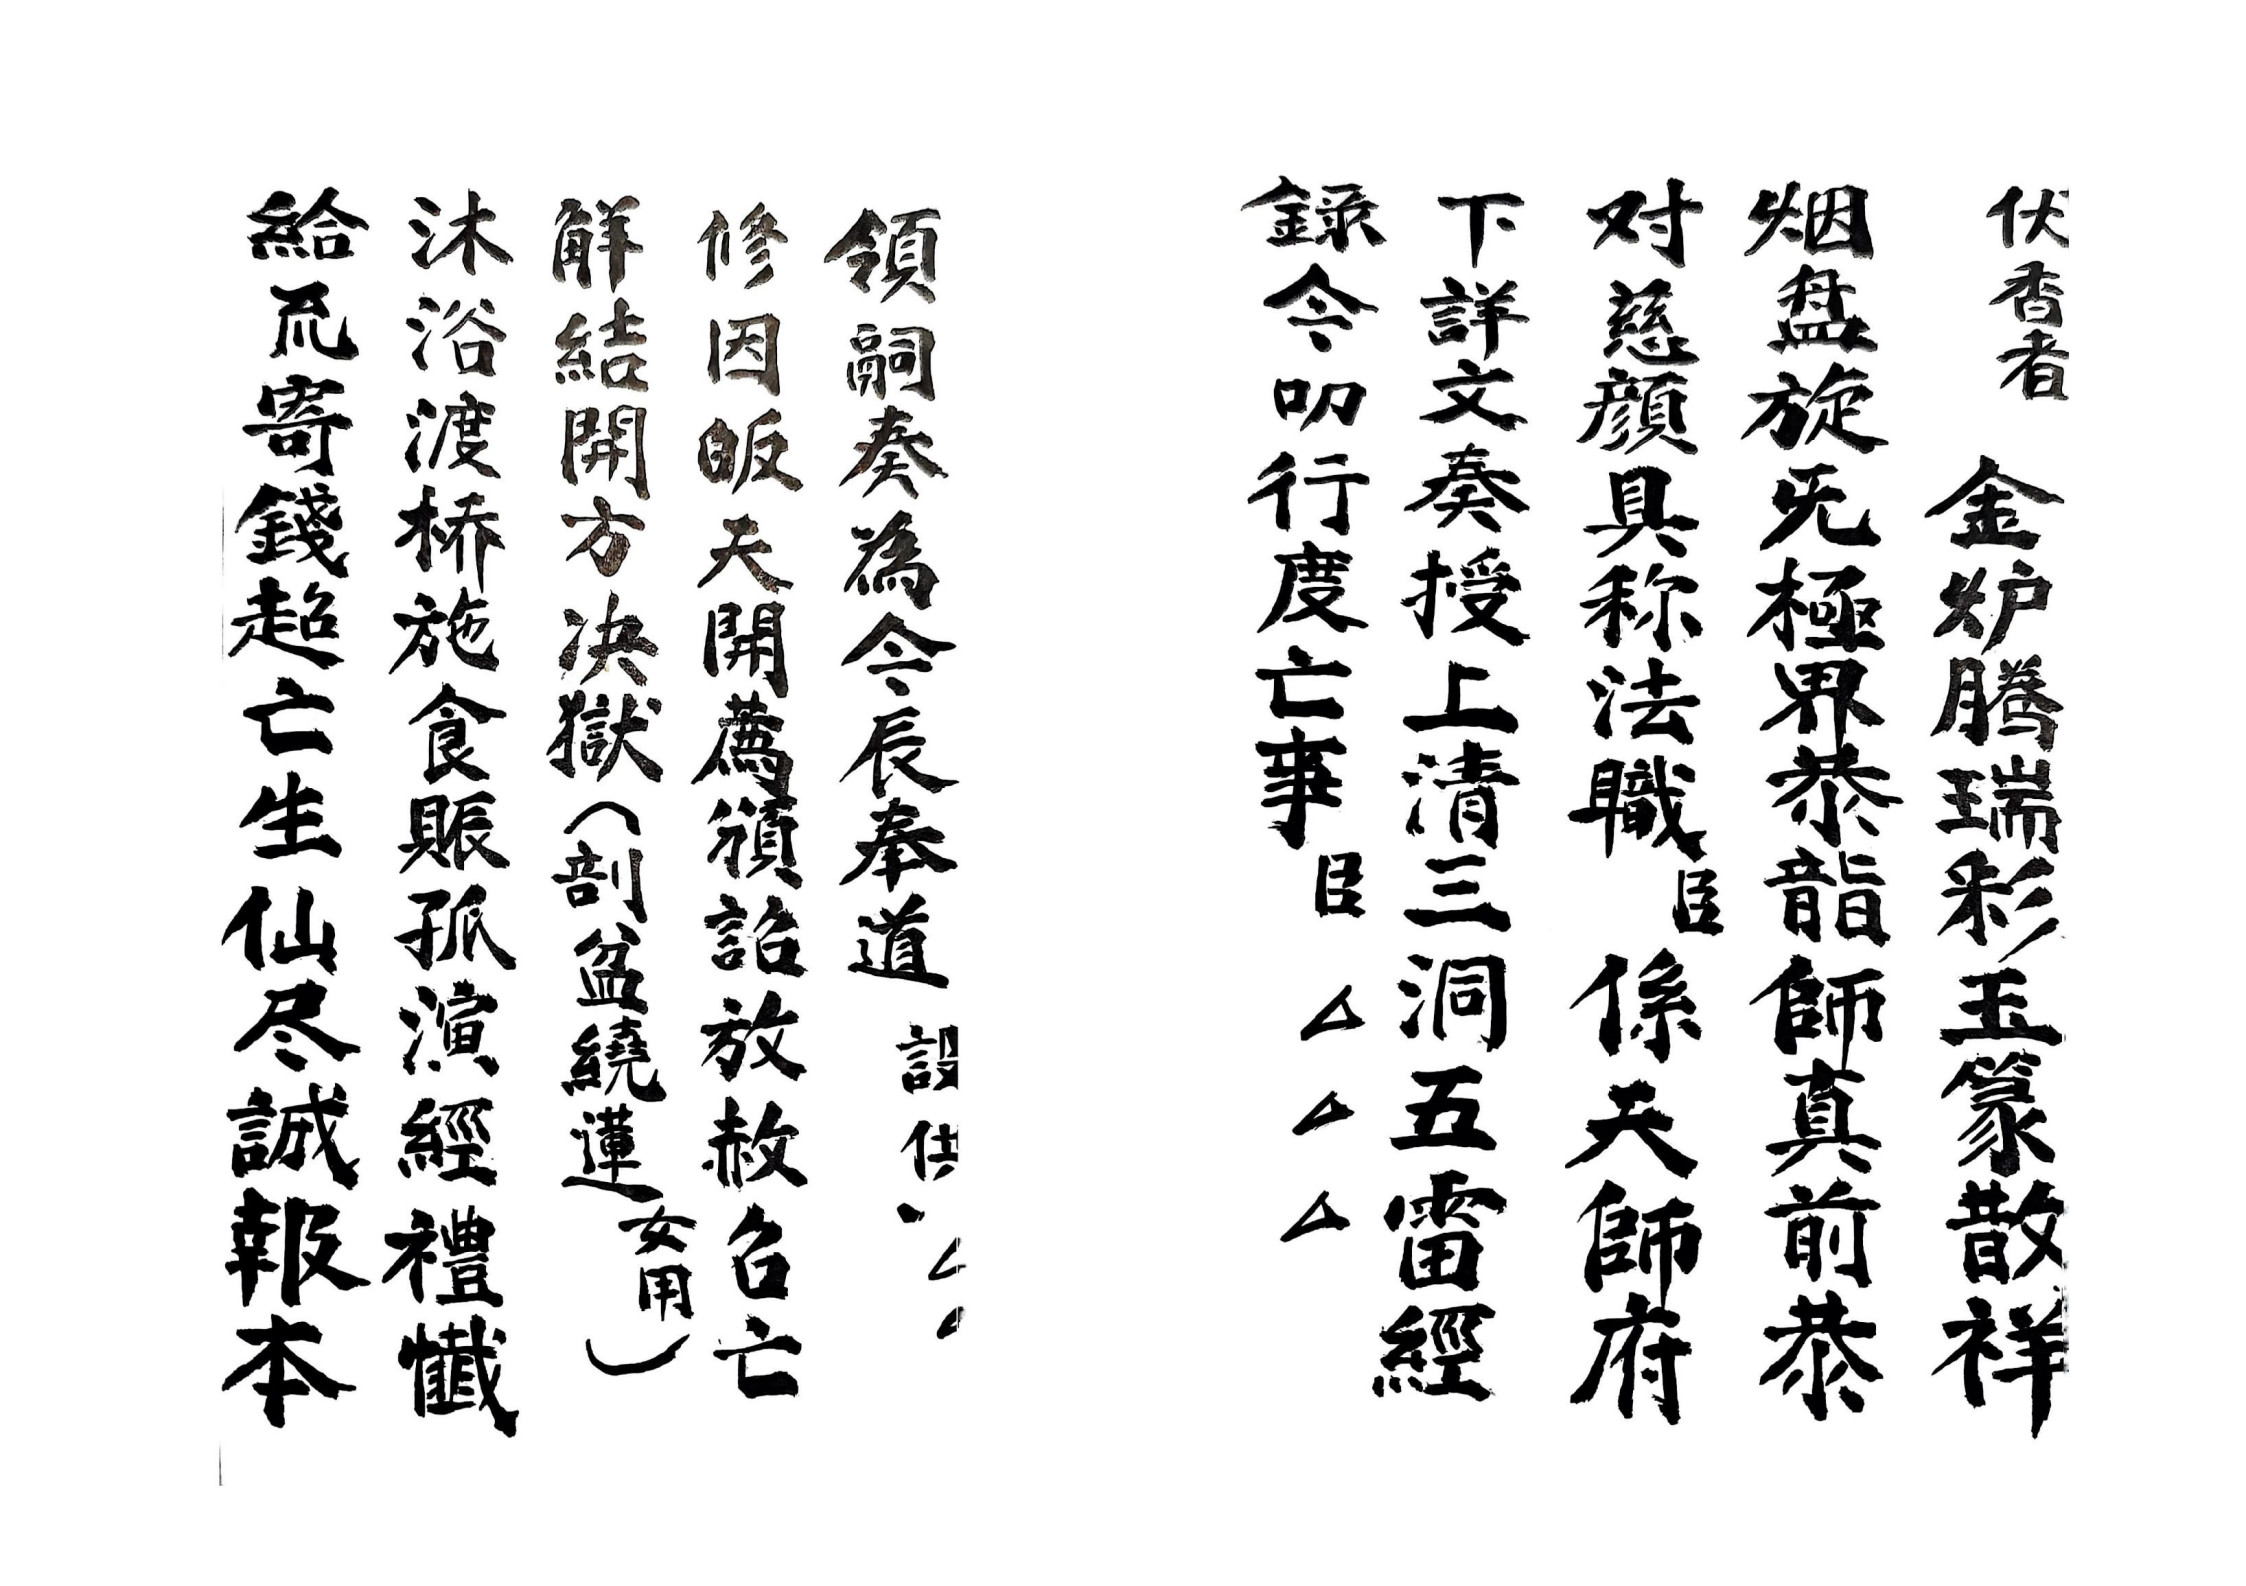 伏香者　金炉腾瑞彩玉篆散祥
烟盘旋旡極界恭詣師真前恭
对慈顔具称法職臣係天師府
下詳文奏授上清三洞五雷經
録今叩行度亡事臣△△△
領嗣奏為今辰奉道設供、△△
修因皈天開薦頒詔放赦召亡
解結開方决獄（剖盆繞蓮女用）
沐浴渡桥施食賑孤演經禮懺
給寄錢超亡生仙尽誠報本